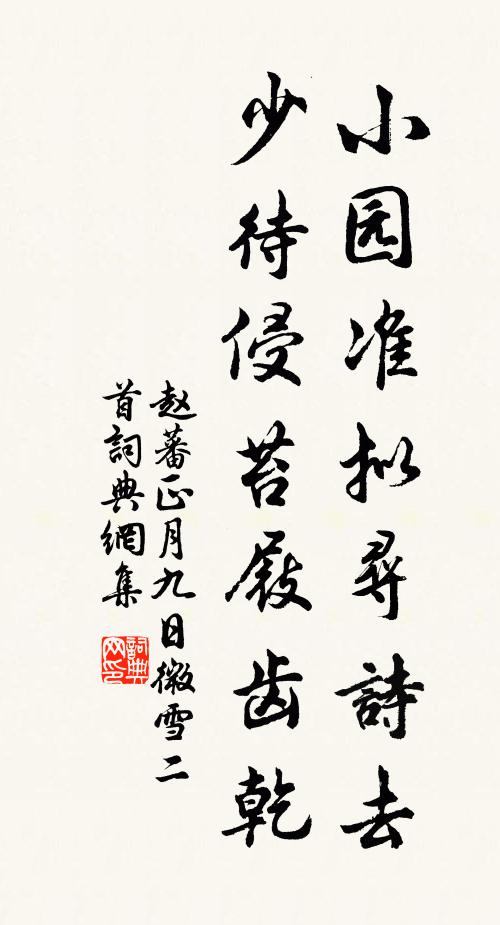 小园准拟寻詩去
少待侵苔屐齿乾
赵蕃正月九日微雪二
首詞典網集
詞典
网印